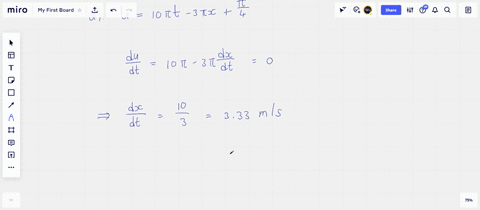 miro My First Board Share
u = 10πt - 3πx + π/4
du/dt = 10π - 3π dx/dt = 0
⇒ dx/dt = 10/3 = 3.33 m/s
75%